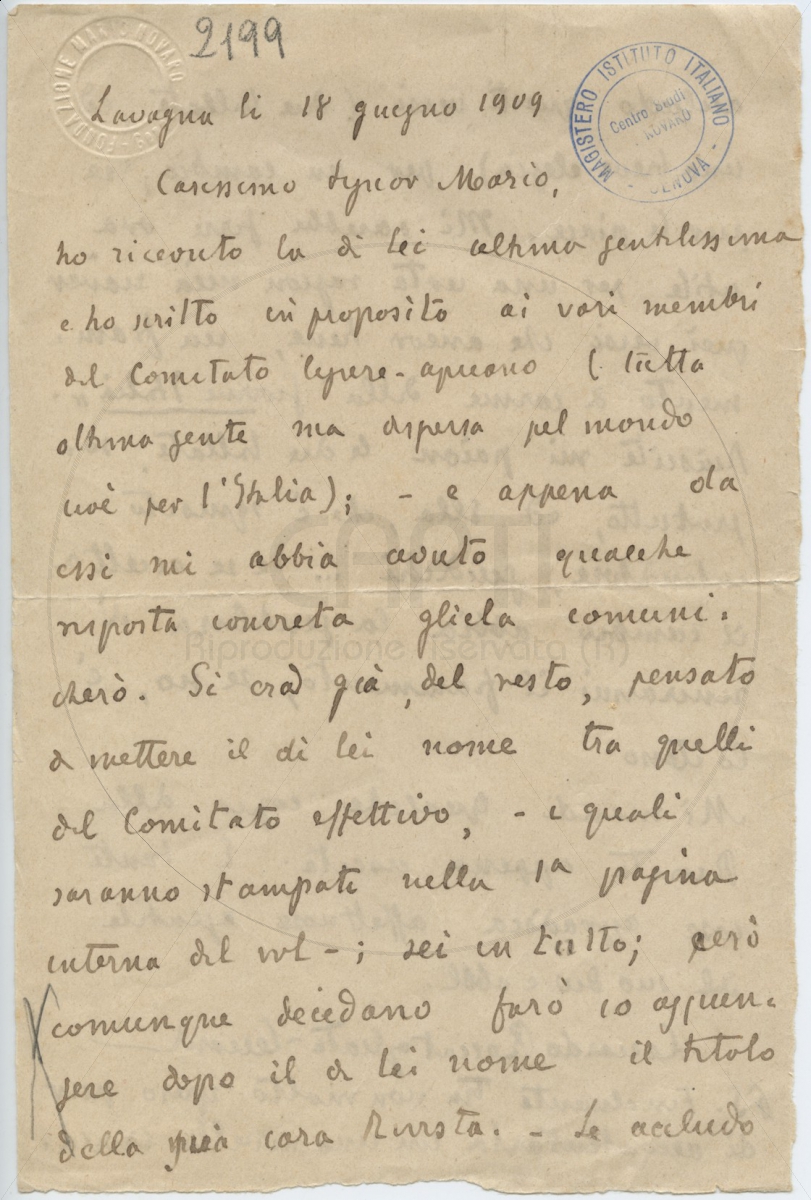 2199
FONDAZIONE MARIO NOVARO
MAGISTERO ISTITUTO ITALIANO
Centro Studi
NOVARO
- GENOVA -
Lavagna li 18 giugno 1909
Carissimo Signor Mario,
ho ricevuto la di Lei ultima gentilissima
e ho scritto in proposito ai vari membri
del Comitato ligure-apuano ( tutta
ottima gente ma dispersa pel mondo
cioè per l'Italia); - e appena da
essi mi abbia avuto qualche
risposta concreta gliela comuni-
cherò. Si era già, del resto, pensato
di mettere il di lei nome tra quelli
del Comitato effettivo, - i quali
saranno stampati nella 1a pagina
interna del vol-; sei in tutto; però
comunque decidano farò io aggiun-
gere dopo il di lei nome il titolo
della cara Rivista. - Le accludo
Riproduzione riservata (R)